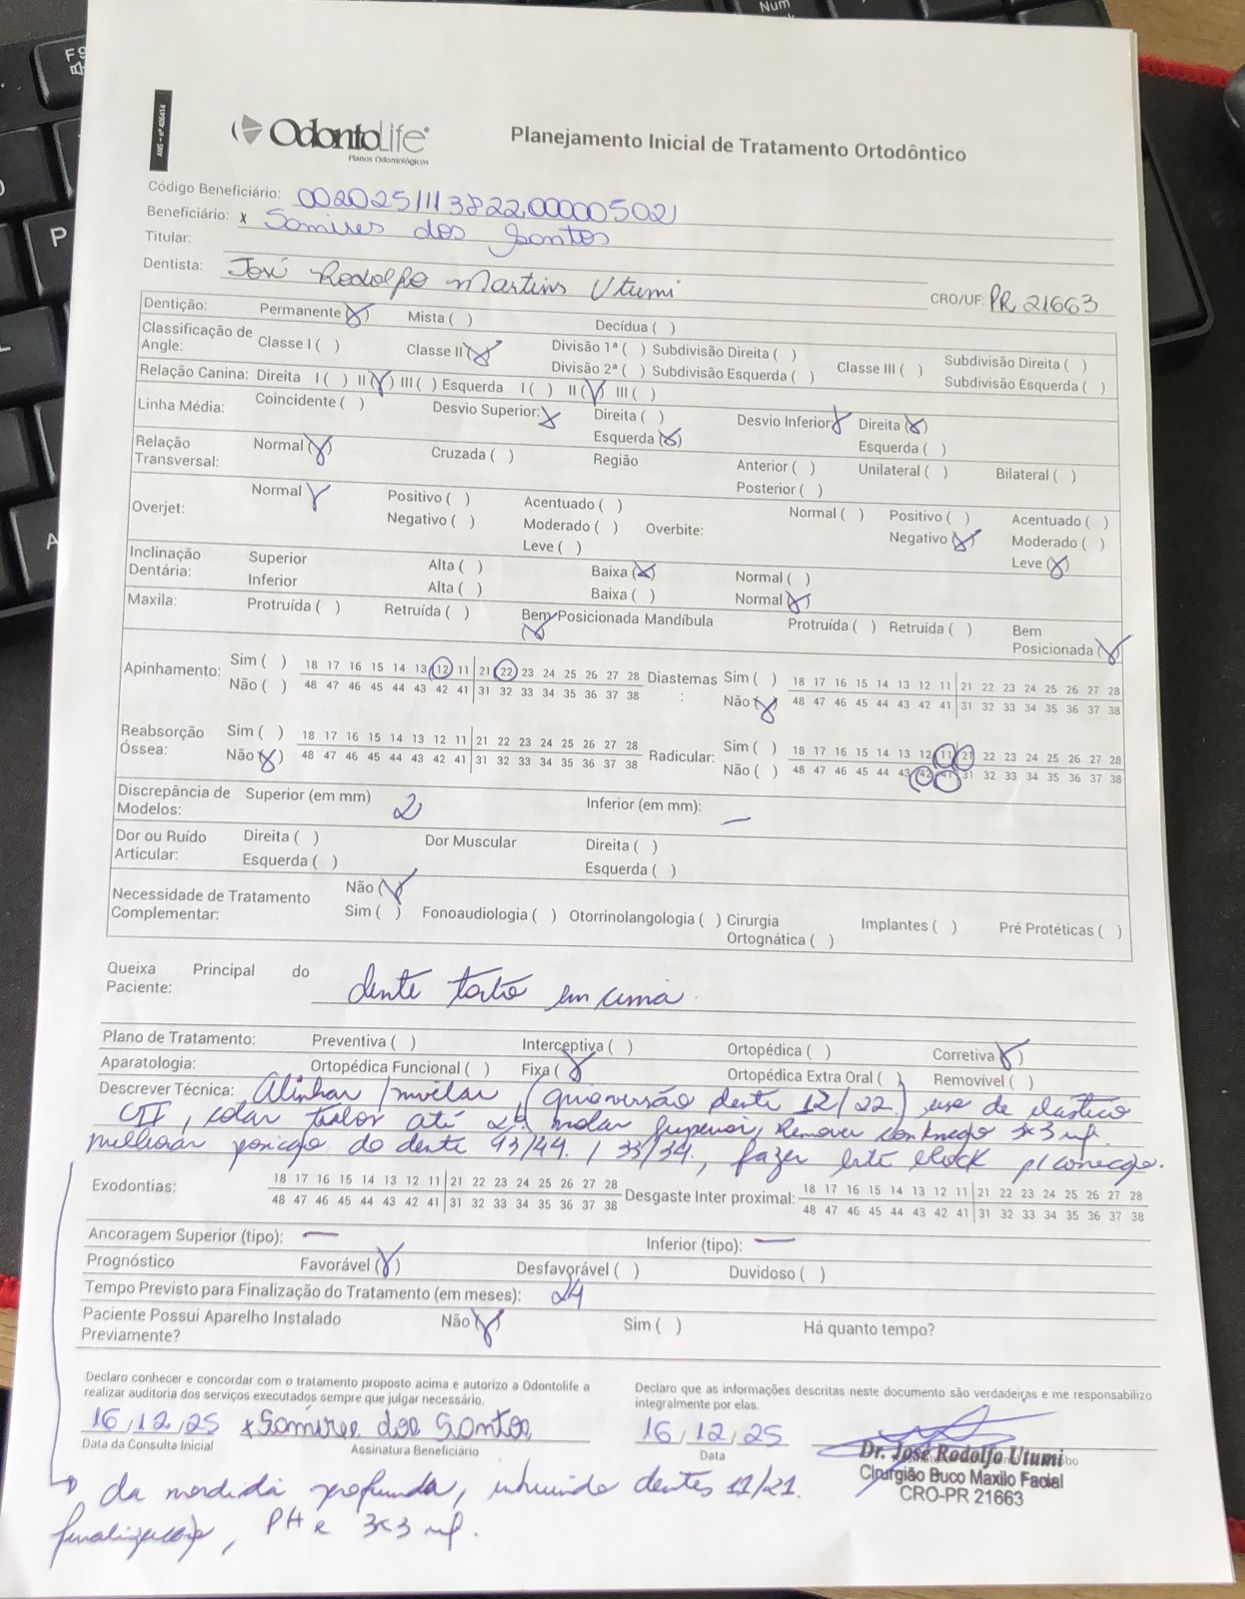 F9
Num
P
L
A
ANS - nº 406414
OdontoLife
Planos Odontológicos
Planejamento Inicial de Tratamento Ortodôntico
Código Beneficiário: 0020251113822000005021
Beneficiário: x Somires dos Santos
Titular:
Dentista: José Rodolfo Martins Utumi CRO/UF: PR 21663
Dentição: Permanente (X) Mista ( ) Decídua ( )
Classificação de Angle: Classe I ( ) Classe II (X) Divisão 1ª ( ) Subdivisão Direita ( ) Divisão 2ª ( ) Subdivisão Esquerda ( ) Classe III ( ) Subdivisão Direita ( ) Subdivisão Esquerda ( )
Relação Canina: Direita I ( ) II (X) III ( ) Esquerda I ( ) II (X) III ( )
Linha Média: Coincidente ( ) Desvio Superior: X Direita ( ) Esquerda (X) Desvio Inferior X Direita (X) Esquerda ( )
Relação Transversal: Normal (X) Cruzada ( ) Região Anterior ( ) Posterior ( ) Unilateral ( ) Bilateral ( )
Overjet: Normal X Positivo ( ) Negativo ( ) Acentuado ( ) Moderado ( ) Leve ( ) Overbite: Normal ( ) Positivo ( ) Negativo (X) Acentuado ( ) Moderado ( ) Leve (X)
Inclinação Dentária: Superior Alta ( ) Baixa (X) Normal ( )
Inferior Alta ( ) Baixa ( ) Normal (X)
Maxila: Protruída ( ) Retruída ( ) Bem Posicionada (X) Mandíbula Protruída ( ) Retruída ( ) Bem Posicionada (X)
Apinhamento: Sim ( ) 18 17 16 15 14 13 12 11 21 22 23 24 25 26 27 28 Diastemas : Sim ( ) 18 17 16 15 14 13 12 11 21 22 23 24 25 26 27 28
Não ( ) 48 47 46 45 44 43 42 41 31 32 33 34 35 36 37 38 Não (X) 48 47 46 45 44 43 42 41 31 32 33 34 35 36 37 38
Reabsorção Óssea: Sim ( ) 18 17 16 15 14 13 12 11 21 22 23 24 25 26 27 28 Radicular: Sim ( ) 18 17 16 15 14 13 12 11 21 22 23 24 25 26 27 28
Não (X) 48 47 46 45 44 43 42 41 31 32 33 34 35 36 37 38 Não ( ) 48 47 46 45 44 43 42 41 31 32 33 34 35 36 37 38
Discrepância de Modelos: Superior (em mm) 2 Inferior (em mm): —
Dor ou Ruído Articular: Direita ( ) Esquerda ( ) Dor Muscular Direita ( ) Esquerda ( )
Necessidade de Tratamento Complementar: Não (X) Sim ( ) Fonoaudiologia ( ) Otorrinolangologia ( ) Cirurgia Ortognática ( ) Implantes ( ) Pré Protéticas ( )
Queixa Principal do Paciente: dente torto em cima.
Plano de Tratamento: Preventiva ( ) Interceptiva ( ) Ortopédica ( ) Corretiva (X)
Aparatologia: Ortopédica Funcional ( ) Fixa (X) Ortopédica Extra Oral ( ) Removível ( )
Descrever Técnica: Alinhar / nivelar, (giroversão dente 12/22) uso de elástico
CII, colar tubos até 2º molar superior, Remover contenção 3x3 inf.
melhorar posição do dente 43/44. / 33/34, fazer bite block p/ correção.
Exodontias: 18 17 16 15 14 13 12 11 21 22 23 24 25 26 27 28 Desgaste Inter proximal: 18 17 16 15 14 13 12 11 21 22 23 24 25 26 27 28
48 47 46 45 44 43 42 41 31 32 33 34 35 36 37 38 48 47 46 45 44 43 42 41 31 32 33 34 35 36 37 38
Ancoragem Superior (tipo): — Inferior (tipo): —
Prognóstico Favorável (X) Desfavorável ( ) Duvidoso ( )
Tempo Previsto para Finalização do Tratamento (em meses): 24
Paciente Possui Aparelho Instalado Previamente? Não (X) Sim ( ) Há quanto tempo?
Declaro conhecer e concordar com o tratamento proposto acima e autorizo a Odontolife a realizar auditoria dos serviços executados sempre que julgar necessário.
Declaro que as informações descritas neste documento são verdadeiras e me responsabilizo integralmente por elas.
16/12/25 x Somires dos Santos 16/12/25
Data da Consulta Inicial Assinatura Beneficiário Data
Dr. José Rodolfo Utumi
Cirurgião Buco Maxilo Facial
CRO-PR 21663
da mordida profunda, intruindo dentes 11/21.
finalização, PH e 3x3 inf.